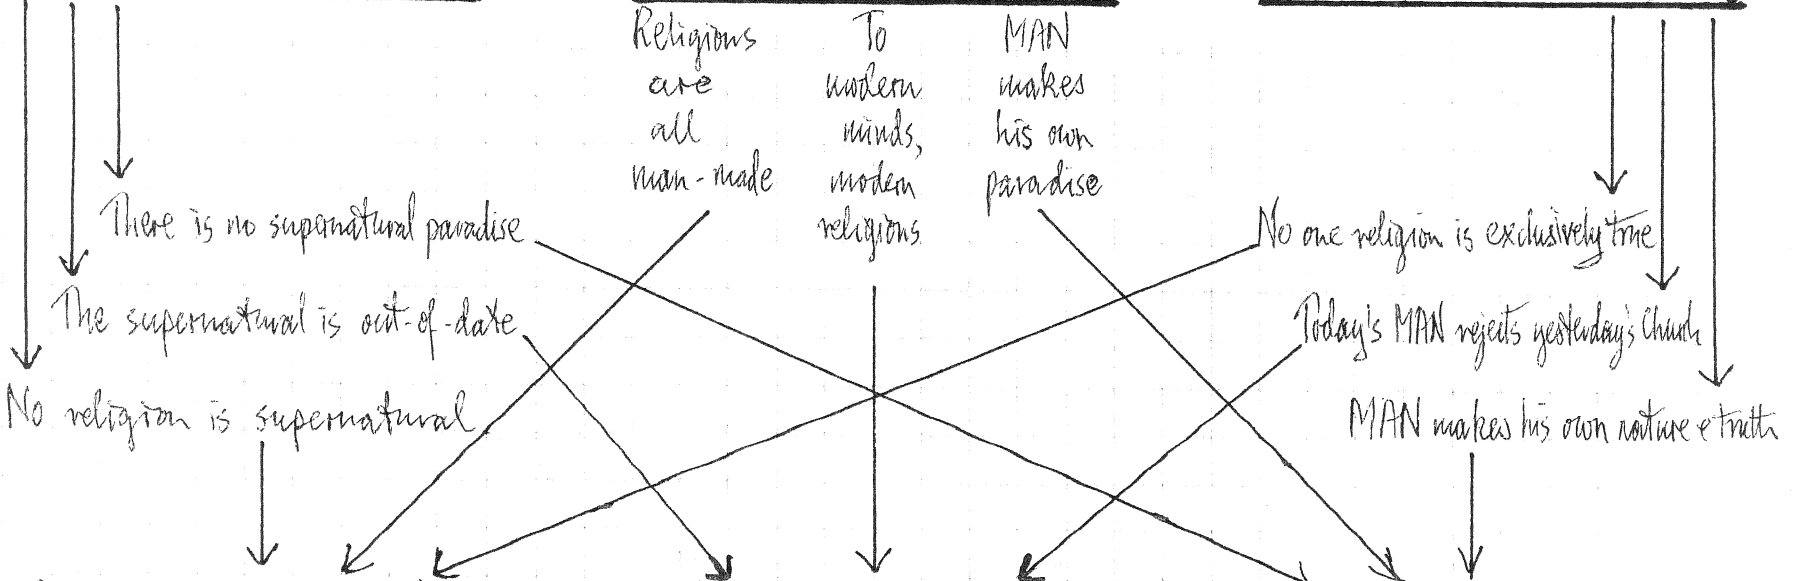 Religions
are
all
man-made
To
modern
minds,
modern
religions
MAN
makes
his own
paradise
There is no supernatural paradise
The supernatural is out-of-date
No religion is supernatural
No one religion is exclusively true
Today's MAN rejects yesterday's Church
MAN makes his own nature e truth